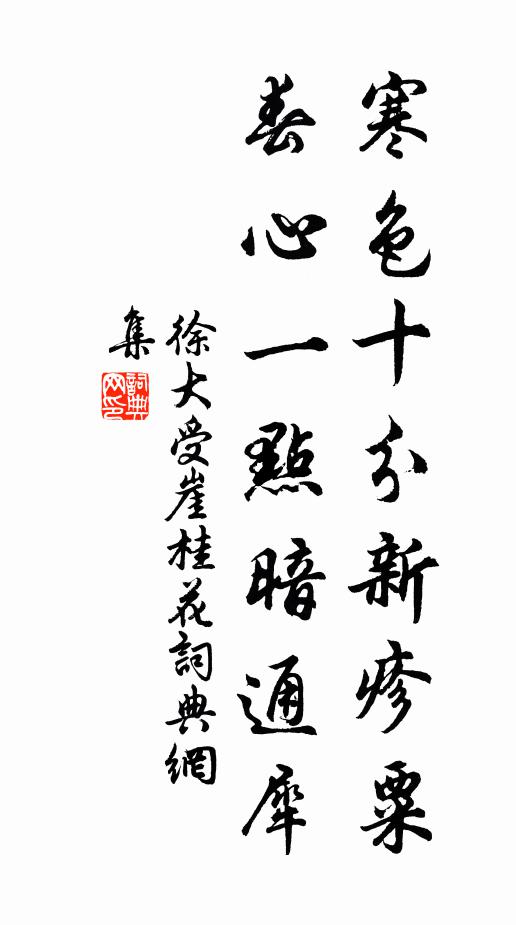 寒色十分新疹粟
春心一點暗通犀
徐大受崖桂花詞典網
集
詞典
网印